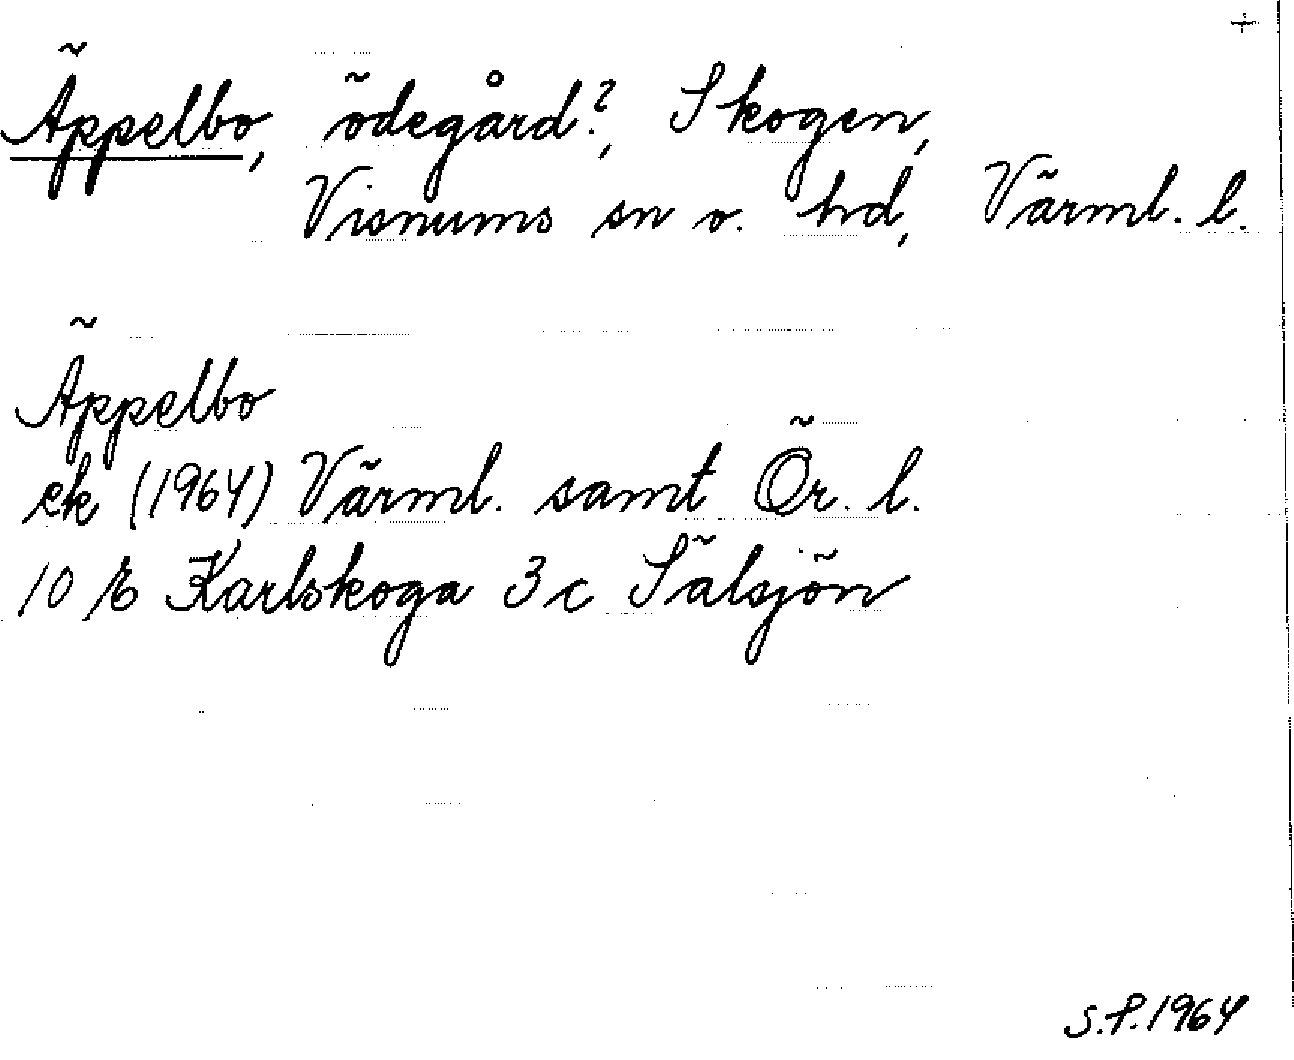 Äppelbo, ödegård?, Skogen,
Visnums sn o. hd, Värml. l.
Äppelbo
ek (1964) Värml. samt Ör. l.
10 E Karlskoga 3 c Sälsjön
S.P. 1964